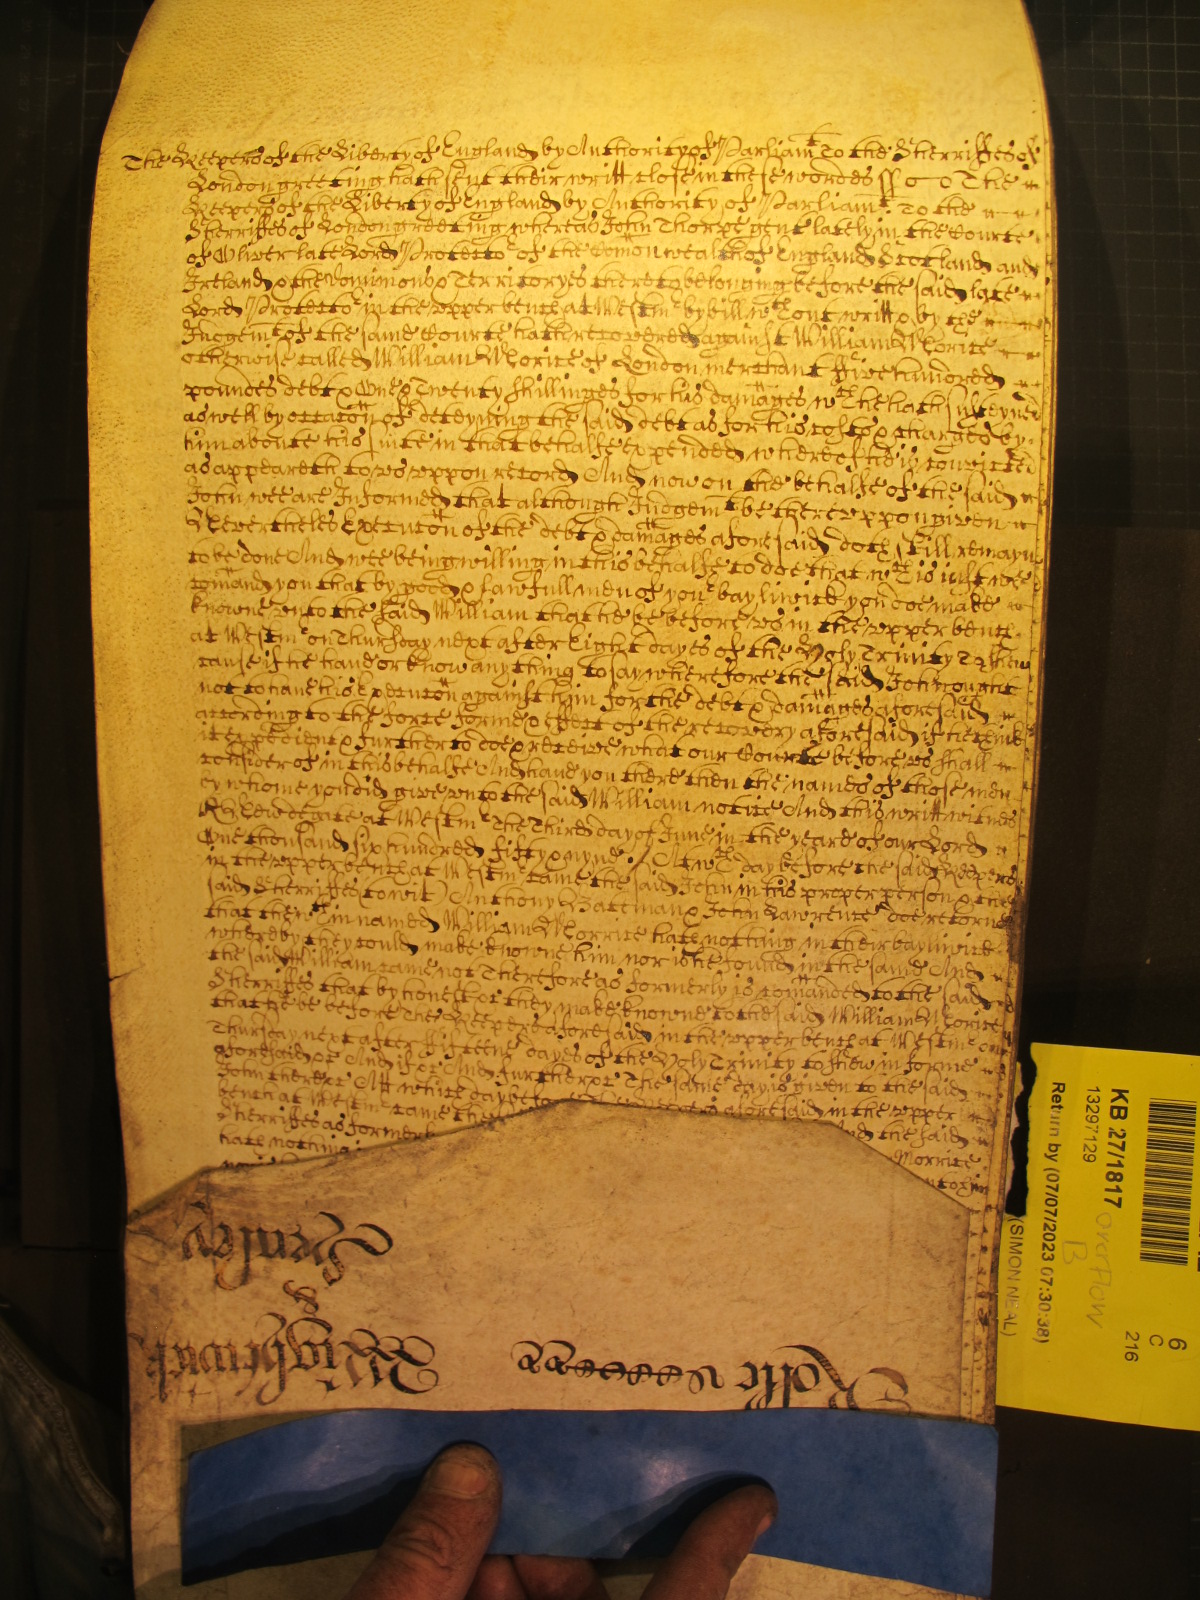 The Keepers of the Liberty of England by Authority of Parliamt To the Sherriffes of
London greeting hath sent their writt close in these wordes ss The
Keepers of the Liberty of England by Authority of Parliamt To the
Sherriffes of London greeting whereas John Thorpe gent lately in the Courte
of Oliver late Lord Protector of the Comonwealth of England Scotland and
Ireland & the dominions & Territoryes thereto belonging before the said late
Lord Protector in the upper bench at Westm by bill wthout writt & by the
Judgemt of the same Courte hath recovered against William Morrice
otherwise called William Morrice of London merchant ffive hundred
poundes debt & One & Twenty shillinges for his damages wch he hath susteyned
as well by occacon of deteyning the said debt as for his costs & charges by
him aboute his suite in that behalfe expended whereof he is convicted
as appeareth to us uppon record And now on the behalfe of the said
John wee are Informed that although Judgemt be thereuppon given
Neverthelesse Execucon of the debt & damages aforesaid doth still remayne
to be done And wee being willing in this behalfe to doe that wch is just wee
comand you that by good & lawfull men of your bayliwick you doe make
knowne unto the said William that he be before us in the upper bench
at Westm on Thursday next after Eight dayes of the Holy Trinity To shew
cause if he have or know any thing to say wherefore the said John ought
not to have his Execucon against him for the debt & damages aforesaid
according to the force forme & effect of the recovery aforesaid if he thinke
it expedient & further to doe & receive what our Courte before us shall
consider of in this behalfe And have you there then the names of those men
by whome you did give unto the said William notice And this writt witnes
Newdegate at Westm The Third day of June in the yeare of our Lord
One thousand six hundred fifty & nyne At wch day before the said Keepers
in the upper bench at Westm came the said John in his proper person & the
said Sherriffes (to wit) Anthony Bateman & John Lawrence doe retorne
that the wthin named William Morrice hath nothing in their bayliwick
whereby they could make knowne him nor is he found in the same And
the said William came not Therefore as formerly is comanded to the said
Sherriffes that by honest &c they make knowne to the said William Morrice
that he be before The Keepers aforesaid in the upper bench at Westm on
Thursday next after ffifteene dayes of the Holy Trinity to shew in forme
aforesaid &c And if &c And further &c The same day is given to the said
John there &c At which day before Keepers aforesaid in the upper
bench at Westm came the And the said
Sherriffes as formerly Morrice
hath nothing
Rolle
Wightwick
&
Surrey
KB 27/1817
13297129
Return by (07/07/2023 07:30:38)
(SIMON NEAL)
overflow
B
6
C
216